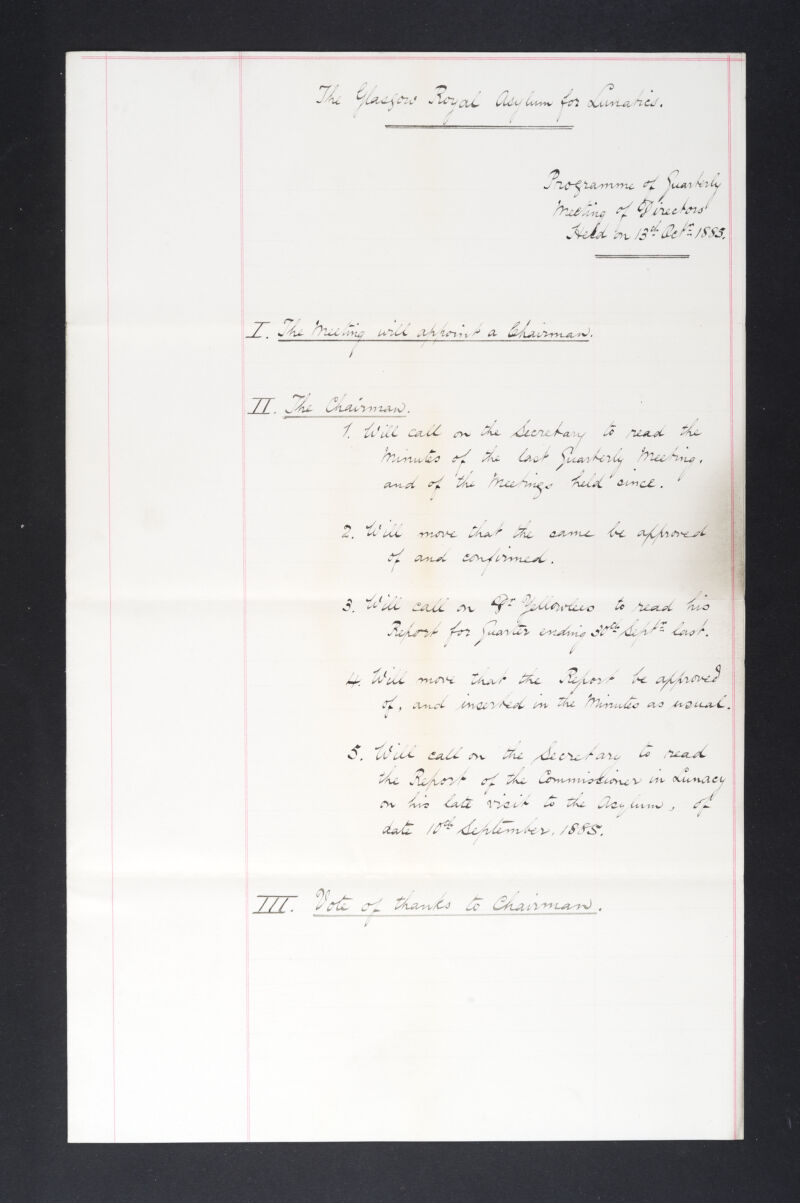 The Glasgow Royal Asylum for Lunatics.
Programme of Quarterly
Meeting of Directors
Held on 13th Octr. 1885.
I. The Meeting will appoint a Chairman.
II. The Chairman.
1. Will call on the Secretary to read the
Minutes of the last Quarterly Meeting,
and of the Meetings held since.
2. Will move that the same be approved
of and confirmed.
3. Will call on Dr Yellowlees to read his
Report for Quarter ending 30th Septr. last.
4. Will move that the Report be approved
of, and inserted in the Minutes as usual.
5. Will call on the Secretary to read
the Report of the Commissioner in Lunacy
on his late visit to the Asylum, of
date 10th September, 1885.
III. Vote of thanks to Chairman.